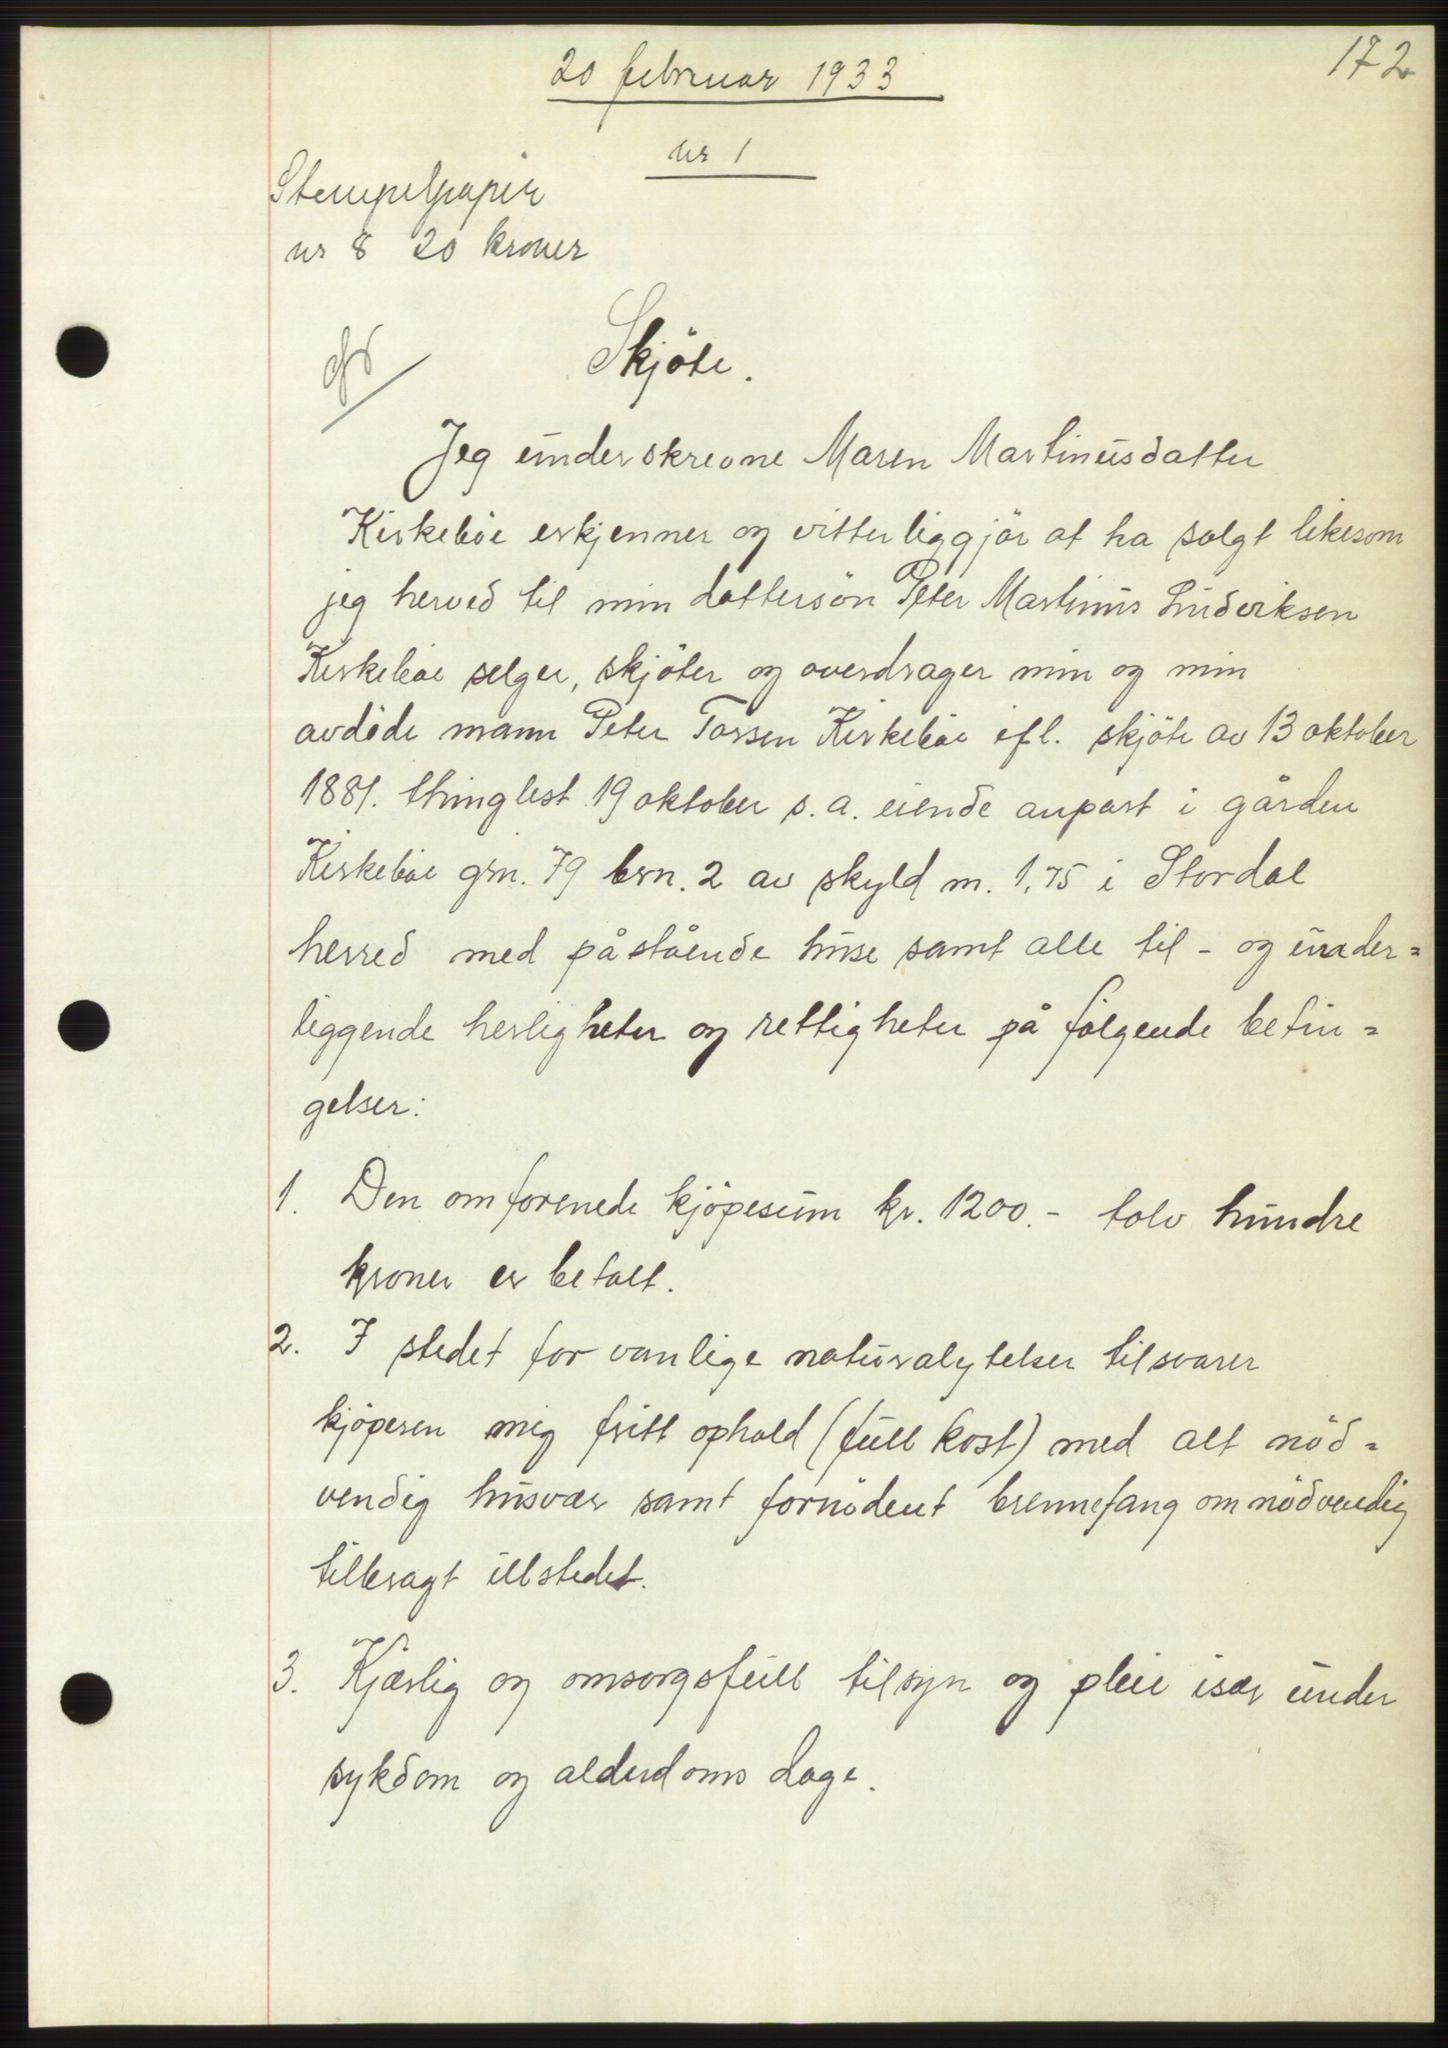 172
20 februar 1933
nr 1
Stempelpapir
nr 8 20 kroner
Skjöte.
Jeg underskrevne Maren Martinusdatter
Kirkeböe erkjenner og vitterliggjör at ha solgt likesom
jeg herved til min dattersön Peter Martinus Luderiksen
Kirkeböe selger, skjöter og overdrager min og min
avdöde mann Peter Torsen Kirkeböe ifl. skjöte av 13 oktober
1881. thinglest 19 oktober s. a. eiende anpart i gården
Kirkeböe grn. 79 brn. 2 av skyld m. 1,75 i Stordal
herred med påstående huse samt alle til - og under=
liggende herligheter og rettigheter på fölgende betin=
gelser:
1. Den omforenede kjöpesum kr. 1200.- tolv hundre
kroner er betalt.
2. I stedet for vanlige naturalytelser tilsvarer
kjöperen mig fritt ophold (full kost) med alt nöd=
vendig husvær samt fornödent brennefang om nödvendig
tilbragt illstedet.
3. Kjærlig og omsorgsfull tilsyn og pleie især under
sykdom og alderdoms dage.